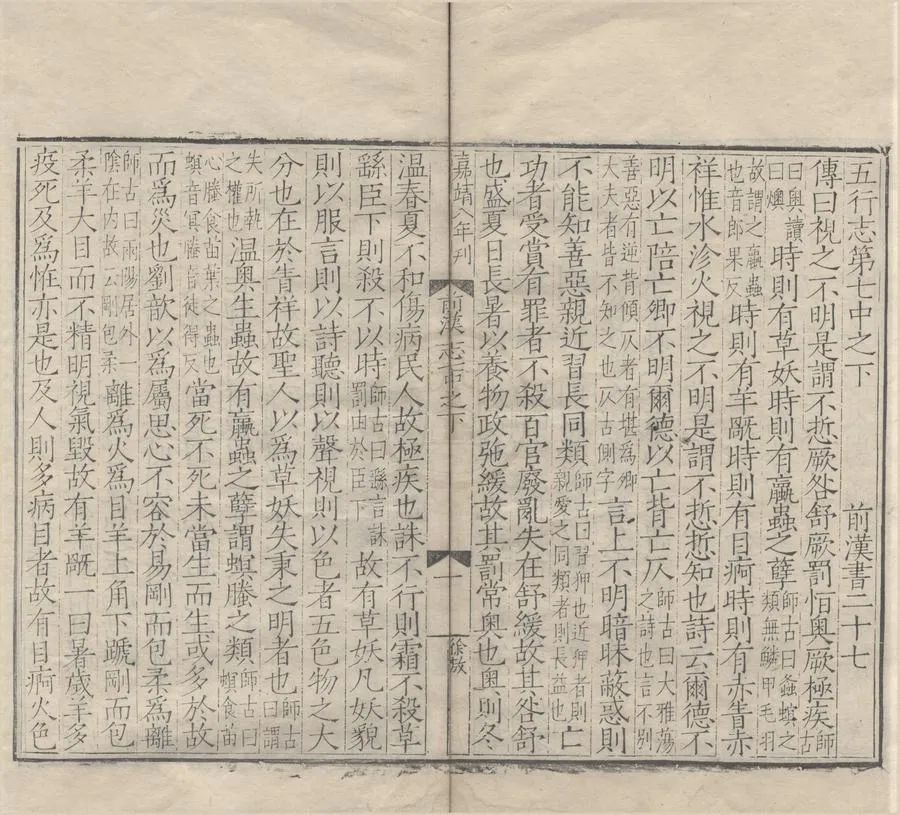 五行志第七中之下　前漢書二十七
傳曰視之不明是謂不悊厥咎舒厥罰恒奧厥極疾師古
曰奧讀曰燠時則有草妖時則有蠃蟲之孽師古曰螽螟之類無鱗甲毛羽
故謂之蠃蟲也音郎果反時則有羊旤時則有目痾時則有赤眚赤
祥惟水沴火視之不明是謂不悊悊知也詩云爾德不
明以亡陪亡卿不明爾德以亡背亡仄師古曰大雅蕩之詩也言不別
善惡有逆背傾仄者有堪爲卿大夫者皆不知之也仄古側字言上不明暗昧蔽惑則
不能知善惡親近習長同類師古曰習狎也近狎者則親愛之同類者則長益也亡
功者受賞有罪者不殺百官廢亂失在舒緩故其咎舒
也盛夏日長暑以養物政弛緩故其罰常奧也奧則冬
嘉靖八年刊　前漢志七中之下　一　徐敖
溫春夏不和傷病民人故極疾也誅不行則霜不殺草
繇臣下則殺不以時師古曰繇言誅罰由於臣下故有草妖凡妖貌
則以服言則以詩聽則以聲視則以色者五色物之大
分也在於眚祥故聖人以爲草妖失秉之明者也師古曰謂
失所執之權也溫奧生蟲故有蠃蟲之孽謂螟螣之類師古曰螟食苗
心螣食苗葉之蟲也螟音冥螣音徒得反當死不死未當生而生或多於故
而爲災也劉歆以爲屬思心不容於易剛而包柔爲離
師古曰兩陽居外一陰在內故云剛包柔離爲火爲目羊上角下蹏剛而包
柔羊大目而不精明視氣毀故有羊旤一曰暑歲羊多
疫死及爲怪亦是也及人則多病目者故有目痾火色